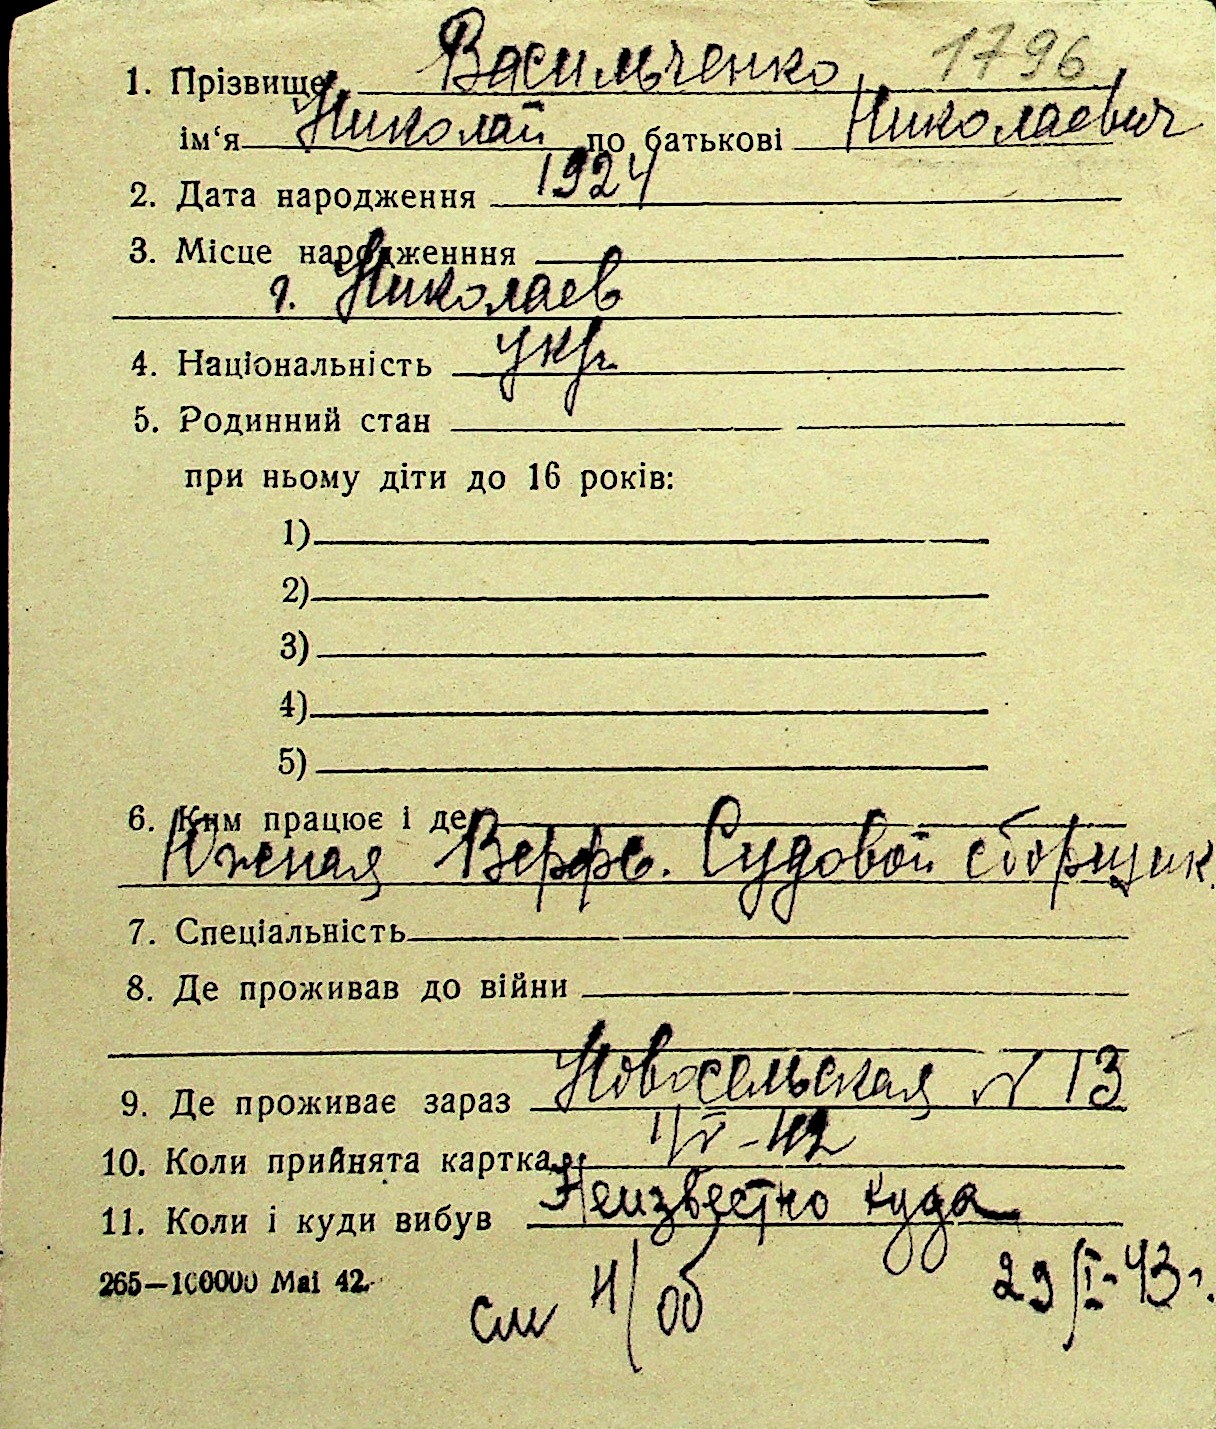 1796
1. Прізвище Васильченко
ім‘я Николай по батькові Николаевич
2. Дата народження 1924
3. Місце народженння
г. Николаев
4. Національність укр.
5. Родинний стан
при ньому діти до 16 років:
1)
2)
3)
4)
5)
6. Ким працює і де
Южная Верфь. Судовой сборщик.
7. Спеціальність
8. Де проживав до війни
9. Де проживає зараз Новосельская № 13
10. Коли прийнята картка 1/V-42
11. Коли і куди вибув Неизвестно куда
265—100000 Mai 42. 29/I-43г.
см н/об